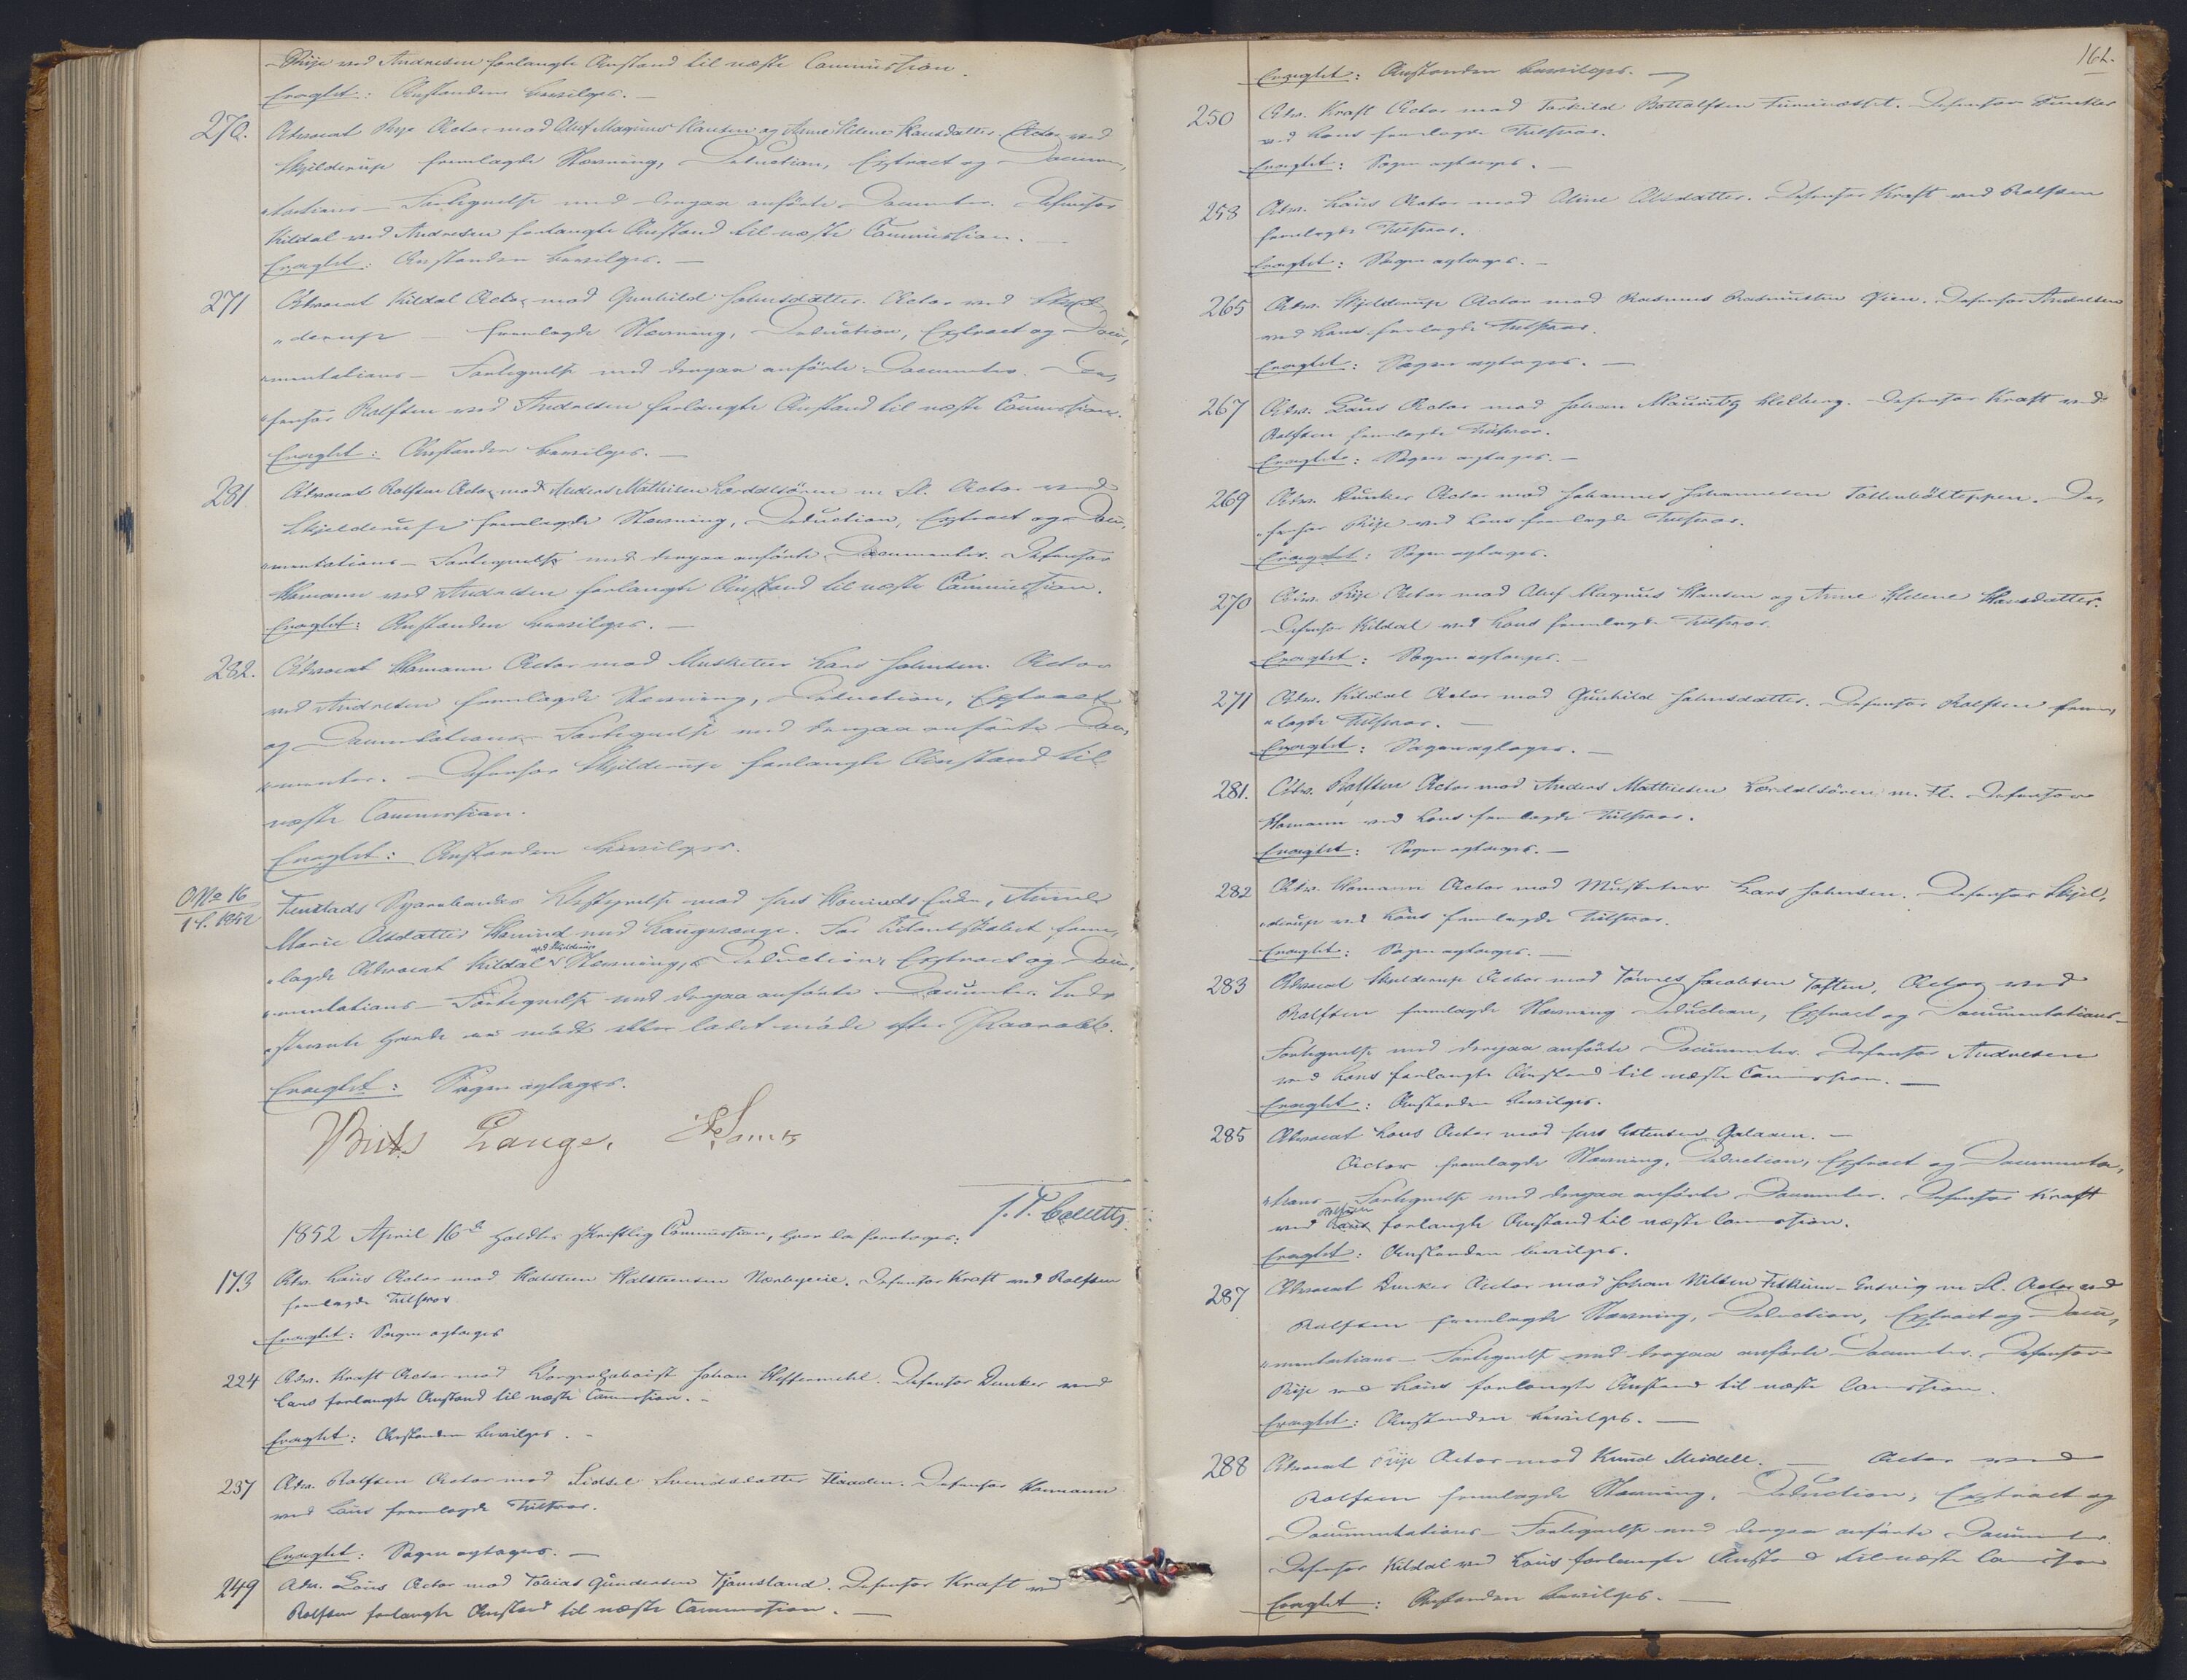 Rije ved Andresen forlangte Anstand til næste Commission.
Eragtet: Anstanden bevilges. —
270. Advocat Rije Actor mod Oluf Magnus Hansen og Anne Helene Hansdatter. Actor ved
Hjelderup fremlagde Stævning, Deduction, Extract og Documen„
„tations – Fortegnelse med derpaa anførte Documenter. Defensor
Kildal ved Andresen forlangte Anstand til næste Commission. —
Eragtet: Anstanden bevilges. —
271 Advocat Kildal Actor mod Gunhild Johnsdatter. Actor ved Hjel„
„derup — fremlagde Stævning, Deduction, Extract og Docu„
„mentations – Fortegnelse med derpaa anførte Documenter. De„
„fensor Rolfsen ved Andresen forlangte Anstand til næste Commission.
Eragtet: Anstanden bevilges. —
281 Advocat Rolfsen Actor mod Anders Mathisen Lærdalsøren m. Fl. Actor ved
Hjelderup fremlagde Stævning, Deduction, Extract og Docu„
„mentations – Fortegnelse med derpaa anførte Documenter. Defensor
Homann ved Andresen forlangte Anstand til næste Commission.
Eragtet: Anstanden bevilges. —
282. Advocat Homann Actor mod Musketeer Lars Johnsen. Actor
ved Andresen fremlagde Stævning, Deduction, Extract
og Documentations – Fortegnelse med derpaa anførte Docu„
„menter. Defensor Hjelderup forlangte Anstand til
næste Commission.
Eragtet: Anstanden bevilges.
O No 16
1 S. 1852
Marie Olsdatter med Laugværge. For frem„
„lagde Advocat Kildal ved Hjelderup Stævning, Deduction, Extract og Docu„
„mentations – Fortegnelse med derpaa anførte Documenter. Inds
„stevnte havde ei mødt eller ladet møde efter Paaraab.
Eragtet: Sagen optages.
Lange.
J. P. Collett
1852 April 16de holdtes skriftlig Commission, hvor da foretoges:
173 Adv. Lous Actor mod Halsteen Halsteensen. Defensor Kraft ved Rolfsen
fremlagde Tilsvar
Eragtet: Sagen optages
224 Adv. Kraft Actor mod Johan. Defensor Dunker ved
Lous forlangte Anstand til næste Commission. –
Eragtet: Anstanden bevilges. –
237 Adv. Rolfsen Actor mod Sidsel Svendsdatter Flaaden. Defensor Homann
ved Lous fremlagde Tilsvar.
Eragtet: Sagen optages. —
249 Adv. Lous Actor mod Tobias Gundersen Tjomsland. Defensor Kraft ved
Rolfsen forlangte Anstand til næste Commission. —
162.
Eragtet: Anstanden bevilges. —
250 Adv. Kraft Actor mod Torkild. Defensor Dunker
ved Lous fremlagde Tilsvar.
Eragtet: Sagen optages. —
258 Adv. Lous Actor mod Oline Olsdatter. Defensor Kraft ved Rolfsen
fremlagde Tilsvar.
Eragtet: Sagen optages. —
265 Adv. Hjelderup Actor mod Rasmus Rasmussen Øien. Defensor Andresen
ved Lous fremlagde Tilsvar.
Eragtet: Sagen optages. —
267 Adv. Lous Actor mod Johan Mauritz. Defensor Kraft ved
Rolfsen fremlagde Tilsvar.
Eragtet: Sagen optages. —
269 Adv. Dunker Actor mod Johannes Johannesen. De„
„fensor Rije ved Lous fremlagde Tilsvar.
Eragtet: Sagen optages.
270 Adv. Rije Actor mod Oluf Magnus Hansen og Anne Helene Hansdatter.
Defensor Kildal ved Lous fremlagde Tilsvar.
Eragtet: Sagen optages. —
271 Adv. Kildal Actor mod Gunhild Johnsdatter. Defensor Rolfsen frem„
„lagde Tilsvar. —
Eragtet: Sagen optages. —
281. Adv. Rolfsen Actor mod Anders Mathisen Lærdalsøren m. Fl. Defensor
Homann ved Lous fremlagde Tilsvar.
Eragtet: Sagen optages. —
282 Adv. Homann Actor mod Musketeer Lars Johnsen. Defensor Hjel„
„derup ved Lous fremlagde Tilsvar.
Eragtet: Sagen optages. —
283 Advocat Hjelderup Actor mod Tønnes Jacobsen Toften. Actor ved
Rolfsen fremlagde Stævning Deduction, Extract og Documentations –
Fortegnelse med derpaa anførte Documenter. Defensor Andresen
ved Lous forlangte Anstand til næste Commission. —
Eragtet: Anstanden bevilges.
285 Advocat Lous Actor mod Jens Galaaen. —
Actor fremlagde Stævning, Deduction, Extract og Documenta„
„tions – Fortegnelse med derpaa anførte Documenter. Defensor Kraft
ved Rolfsen forlangte Anstand til næste Commission.
Eragtet: Anstanden bevilges.
287 Advocat Dunker Actor mod Johan Nilsen m. Fl. Actor ved
Rolfsen fremlagde Stævning, Deduction, Extract og Docu„
„mentations – Fortegnelse med derpaa anførte Documenter. Defensor
Rije ved Lous forlangte Anstand til næste Commission.
Eragtet: Anstanden bevilges. —
288 Advocat Rije Actor mod Knud Meidell. — Actor ved
Rolfsen fremlagde Stævning, Deduction, Extract og
Documentations – Fortegnelse med derpaa anførte Documenter.
Defensor Kildal ved Lous forlangte Anstand til næste Commission
Eragtet: Anstanden bevilges. —